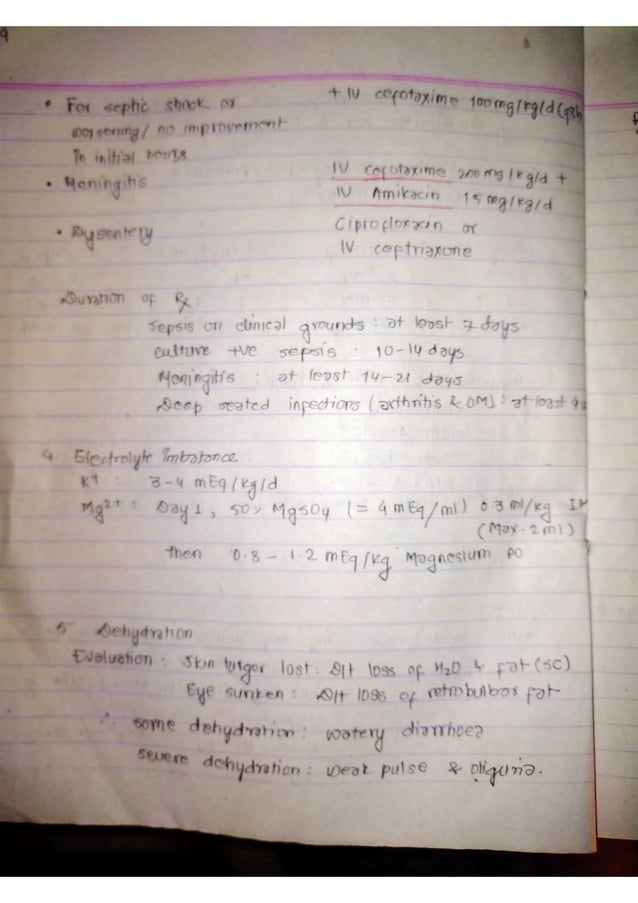 • For septic shock or + IV cefotaxime 100mg/kg/d (q8h
worsening/ no improvement
in initial hours
• Meningitis IV cefotaxime 200 mg/kg/d +
IV Amikacin 15 mg/kg/d
• Dysentery Ciprofloxacin or
IV ceftriaxone
Duration of Rx:
Sepsis on clinical grounds : at least 7 days
culture +ve sepsis : 10-14 days
Meningitis : at least 14-21 days
Deep seated infections (arthritis & OM) : at least 4
4. Electrolyte imbalance
K+ : 3-4 mEq/kg/d
Mg2+ : Day 1, 50% MgSO4 (= 4 mEq/ml) 0.3 ml/kg IM
(Max. 2 ml)
then 0.8 - 1.2 mEq/kg Magnesium PO
5 Dehydration
Evaluation : Skin turgor lost : D/t loss of H2O & fat (SC)
Eye sunken : D/t loss of retrobulbar fat
∴ some dehydration : watery diarrhoea
severe dehydration : weak pulse & oliguria.